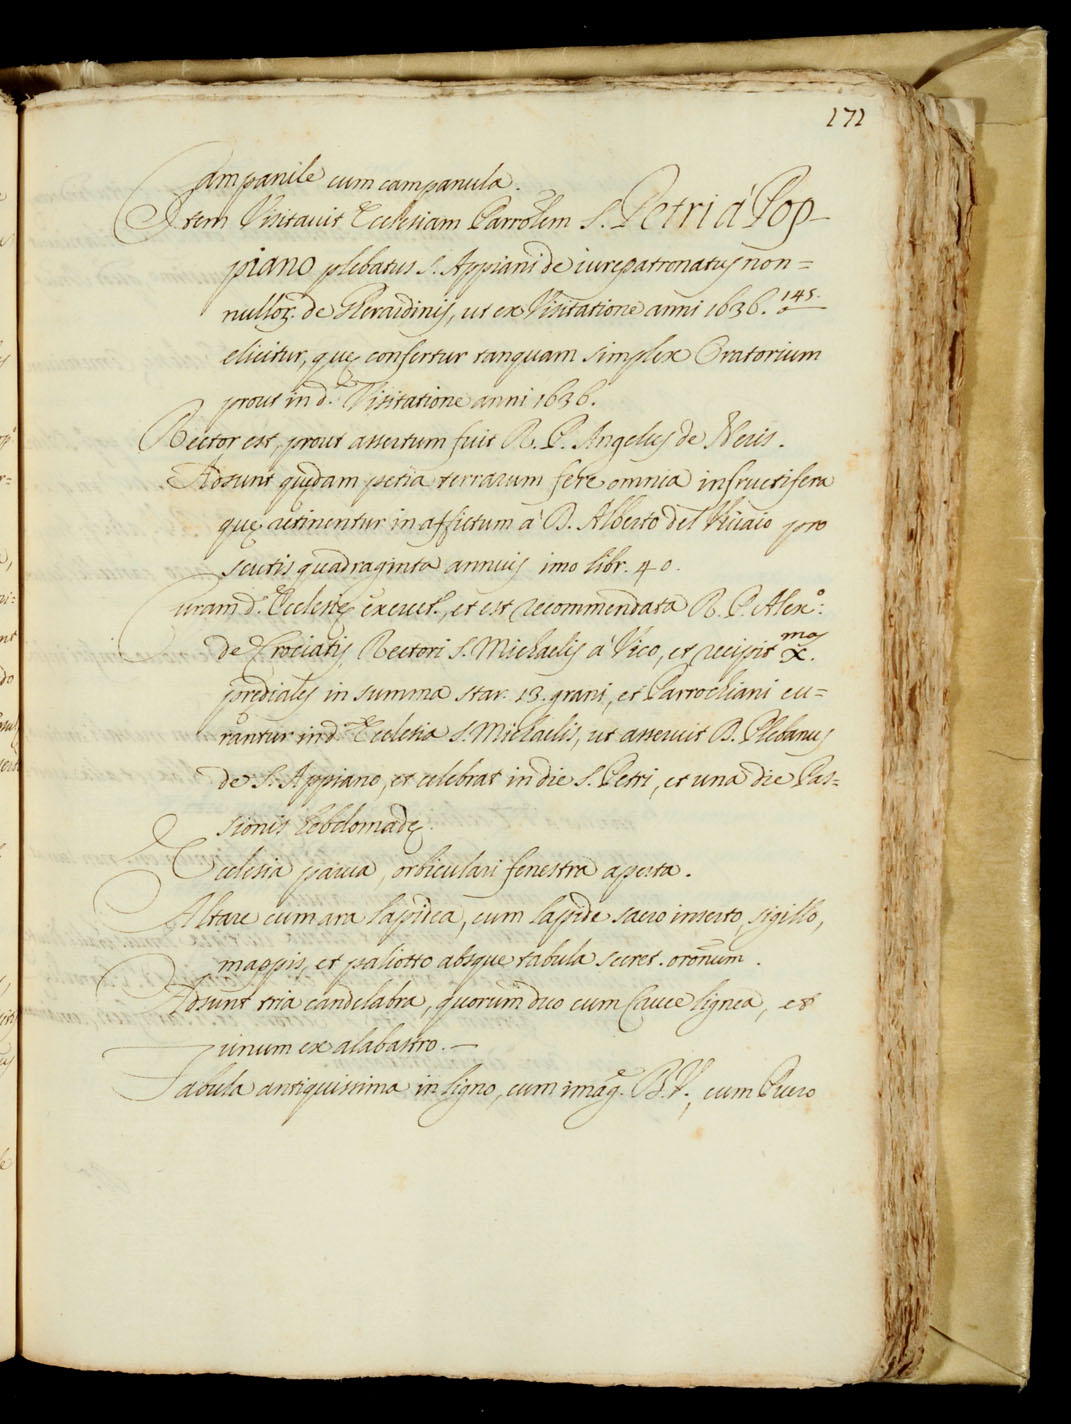 171
Campanile cum campanula.
Item Visitavit Ecclesiam Parrõlem S. Petri á Pop-
piano plebatus S. Appiani de iurepatronatus non=
nulloꝝ. de Gherardinis, ut ex Visitatione anni 1636. 145.
elicitur, quę confertur tanquam simplex Oratorium
prout in d.ᵃ Visitatione anni 1636.
Rector est, prout assertum fuit R. P. Angelus de Neris.
Adsunt quędam petia terrarum fere omnia infructifera
quę retinentur in affictum á D. Alberto del Vivaio pro
scutis quadraginta annuis imo libr. 40.
Curam d.ᵉ Ecclesię exercet, et est recommendata R. P. Alex.º:
de Crociatis Rectori S. Michaelis á Vico, et recipit X.mas
prediales in summa star. 13. grani, et Parrochiani cu=
rantur in d.ᵃ Ecclesia S. Michaelis, ut asseruit D. Plebanus
de S. Appiano, et celebrat in die S. Petri, et una die Pas=
sionis hebdomadę.
Ecclesia parva, orbiculari fenestra aperta.
Altare cum ara lapidea, cum lapide sacro inserto, sigillo,
mappis, et paliotto absque tabula secret. orõnum.
Adsunt tria candelabra, quorum duo cum Cruce lignea, et
unum ex alabastro.—
Tabula antiquissima in ligno, cum imag.ᵉ B.V., cum Puero